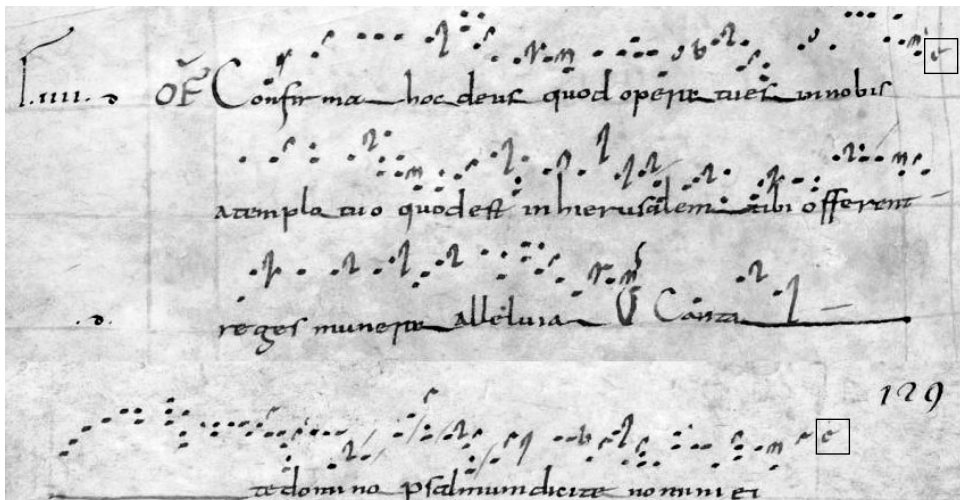 l.iiii. d OF Confirma hoc deus quod operatus es in nobis e
a templo tuo quod est in hierusalem tibi offerent
.d. reges munera alleluia V Canta
129
e
te domino psalmum dicite nomini ei